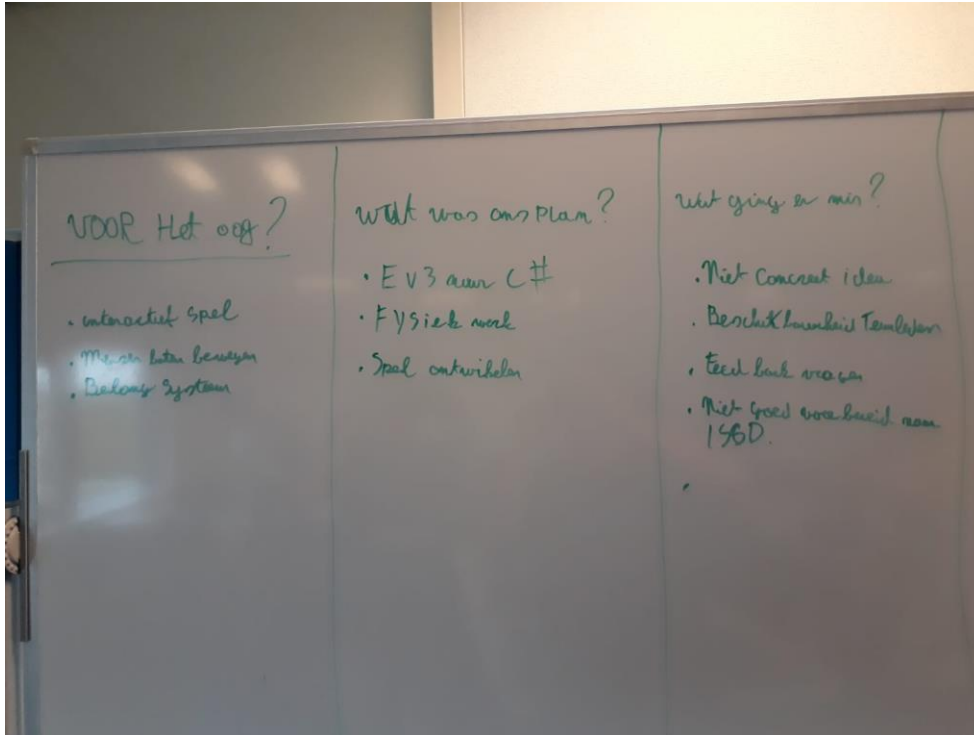 VOOR Het oog?
• interactief spel
• Mensen laten bewegen
• Beloning systeem
Wat was ons plan?
• EV3 naar C#
• Fysiek werk
• Spel ontwikkelen
Wat ging er mis?
• Niet Concreet idee
• Beschikbaarheid Teamleden
• Feed back vragen
• Niet goed voorbereid naar
ISGD.
•